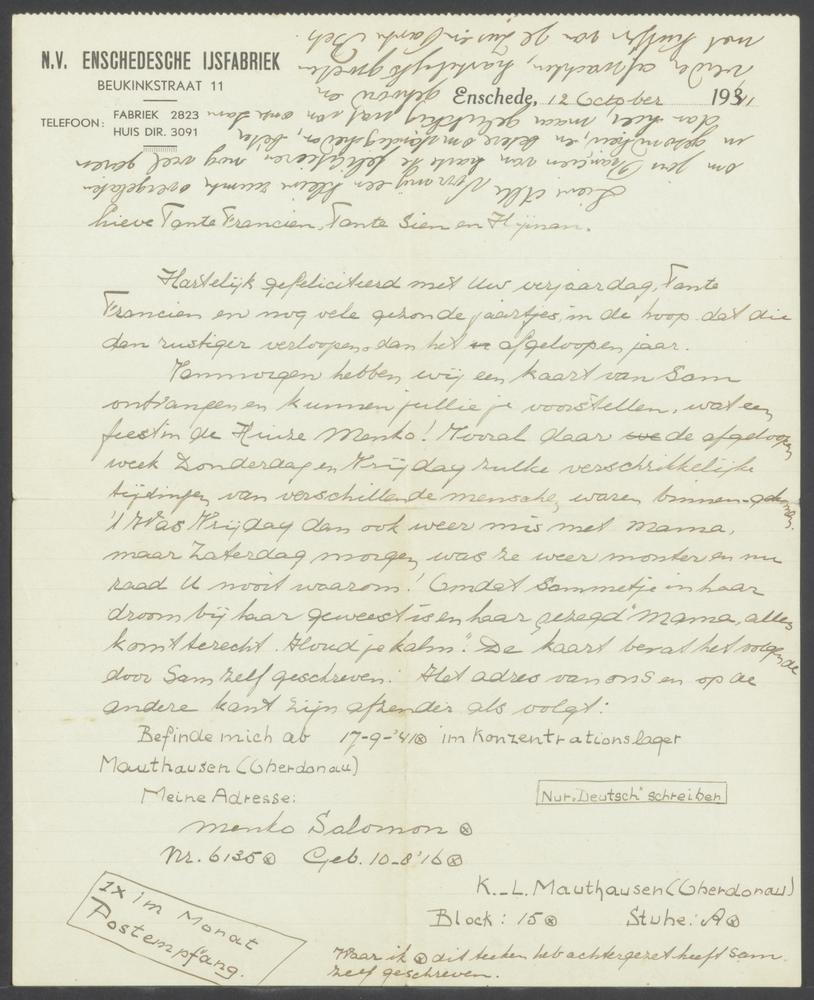 N.V. ENSCHEDESCHE IJSFABRIEK
BEUKINKSTRAAT 11
TELEFOON: FABRIEK 2823
HUIS DIR. 3091
Enschede, 12 October 1941
Lieve Tante Francien, Tante Sien en Hijman.
Hartelijk gefeliciteerd met Uw verjaardag, Tante
Francien en nog vele gezonde jaartjes, in de hoop dat die
dan rustiger verloopen dan het afgeloopen jaar.
Vanmorgen hebben wij een kaart van Sam
ontvangen en kunnen jullie je voorstellen, wat een
feest in de Huize Menko! Vooral daar de afgeloopen
week Donderdag en Vrijdag zulke verschrikkelijke
tijdingen van verschillende menschen waren binnen-gekomen.
't Was Vrijdag dan ook weer mis met mama,
maar Zaterdag morgen was ze weer monter en nu
raad U nooit waarom! Omdat Sammetje in haar
droom bij haar geweest is en haar gezegd "Mama, alles
komt terecht. Houd je kalm". De kaart bevat het volgende
door Sam zelf geschreven. Het adres van ons en op de
andere kant zijn afzender als volgt:
Befinde mich ab 17-9-'41 ⊗ im Konzentrationslager
Mauthausen (Oberdonau)
Meine Adresse:
Nur "Deutsch" schreiben
Menko Salomon ⊗
Nr. 6135 ⊗ Geb. 10-8'16 ⊗
K.-L. Mauthausen (Oberdonau)
Block: 15 ⊗ Stube: A ⊗
1x im Monat
Postempfang.
Waar ik ⊗ dit teeken heb achtergezet heeft Sam
zelf geschreven.
Lieve Alle Vorrang een klein ruimte overgelaten
om jou Francien van harte te feliciteeren nog veel jaren
in gezondheid, en betere omstandigheden,
dan hier, maar gelukkig wat van onze Sam
gehoord en
verder afwachten, hartelijk gegroeten
met kussen van je zuster Tante Bet